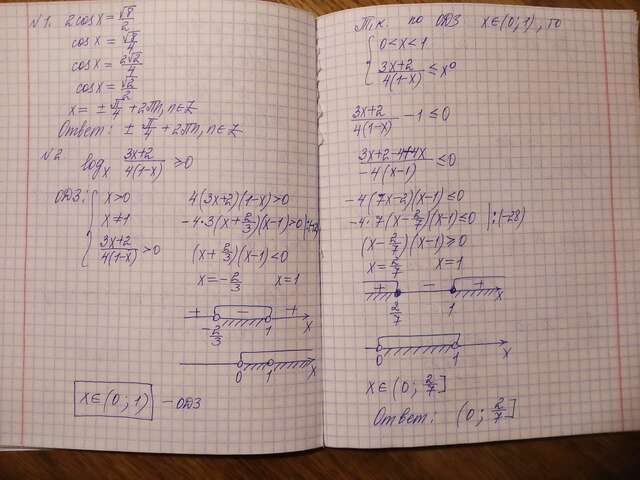 №1. 2cosx = √8/2
cosx = √8/4
cosx = 2√2/4
cosx = √2/2
x = ± π/4 + 2πn, n∈Z
Ответ: ± π/4 + 2πn, n∈Z
№2 logₓ (3x+2)/(4(1-x)) ≥0
ОДЗ: { x>0
x≠1
(3x+2)/(4(1-x)) >0
4(3x+2)(1-x)>0
-4·3(x+2/3)(x-1)>0 |:(-12)
(x+2/3)(x-1)<0
x=-2/3 x=1
+ - +
-2/3 1 x
0 1 x
x∈(0;1) - ОДЗ
Т.к. по ОДЗ x∈(0;1), то
{ 0<x<1
(3x+2)/(4(1-x)) ≤ x⁰
(3x+2)/(4(1-x)) -1≤0
(3x+2-4+4x)/(-4(x-1)) ≤0
-4(7x-2)(x-1)≤0
-4·7(x-2/7)(x-1)≤0 |:(-28)
(x-2/7)(x-1)≥0
x=2/7 x=1
+ - +
2/7 1 x
0 1 x
x∈(0; 2/7]
Ответ: (0; 2/7]